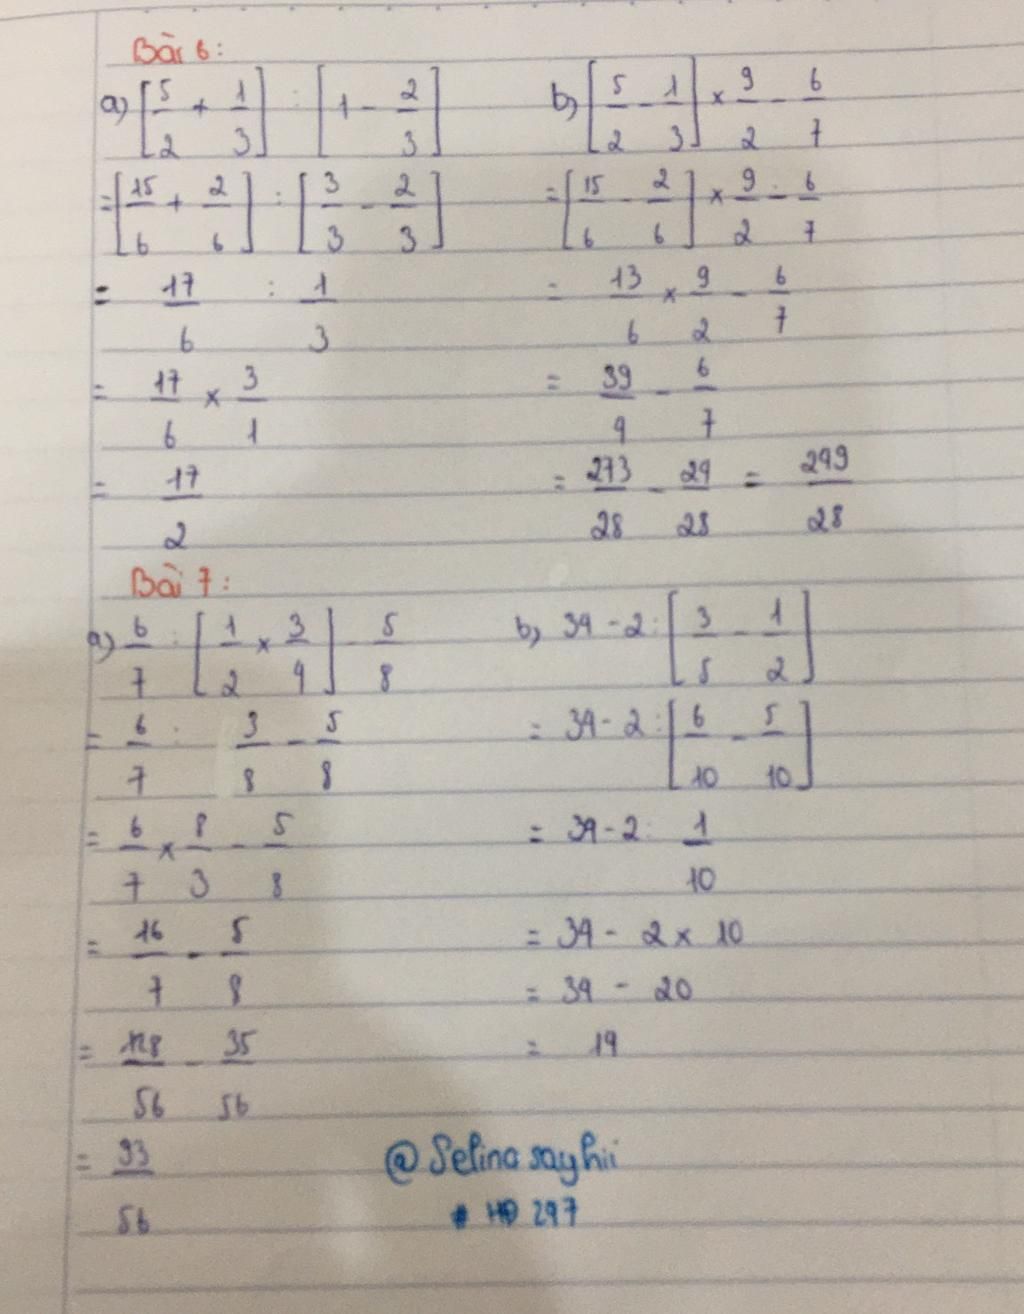 Bài 6:
a) [5/2 + 1/3] : [1 - 2/3]
= [15/6 + 2/6] : [3/3 - 2/3]
= 17/6 : 1/3
= 17/6 × 3/1
= 17/2
b) [5/2 - 1/3] × 9/2 - 6/7
= [15/6 - 2/6] × 9/2 - 6/7
= 13/6 × 9/2 - 6/7
= 39/4 - 6/7
= 273/28 - 24/28 = 249/28
Bài 7:
a) 6/7 : [1/2 × 3/4] - 5/8
= 6/7 : 3/8 - 5/8
= 6/7 × 8/3 - 5/8
= 16/7 - 5/8
= 128/56 - 35/56
= 93/56
b) 34 - 2 : [3/5 - 1/2]
= 34 - 2 : [6/10 - 5/10]
= 34 - 2 : 1/10
= 34 - 2 × 10
= 34 - 20
= 14
@Selina sayhii
# HD 247